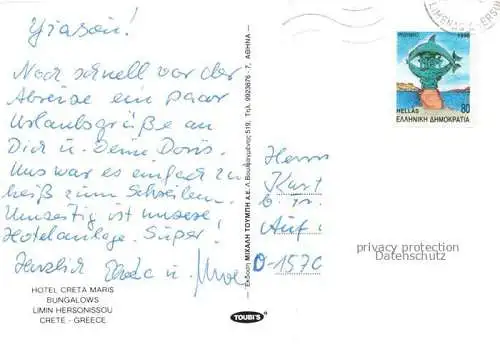 Yiasou!
Noch schnell vor der
Abreise ein paar
Urlaubsgrüße an
Dich u. Deine Doris.
Uns war es einfach zu
heiß zum Schreiben.
Umseitig ist unsere
Hotelanlage. Super!
Herzlich u.
HOTEL CRETA MARIS
BUNGALOWS
LIMIN HERSONISSOU
CRETE - GREECE
Έκδοση ΜΙΧΑΛΗ ΤΟΥΜΠΗ Α.Ε. Λ. Βουλιαγμένης 519, Τηλ. 9923876 - 7, ΑΘΗΝΑ
TOUBI'S
1992
80
HELLAS
ΕΛΛΗΝΙΚΗ ΔΗΜΟΚΡΑΤΙΑ
Herrn
Kurt
Auf
D-1570
privacy protection
Datenschutz